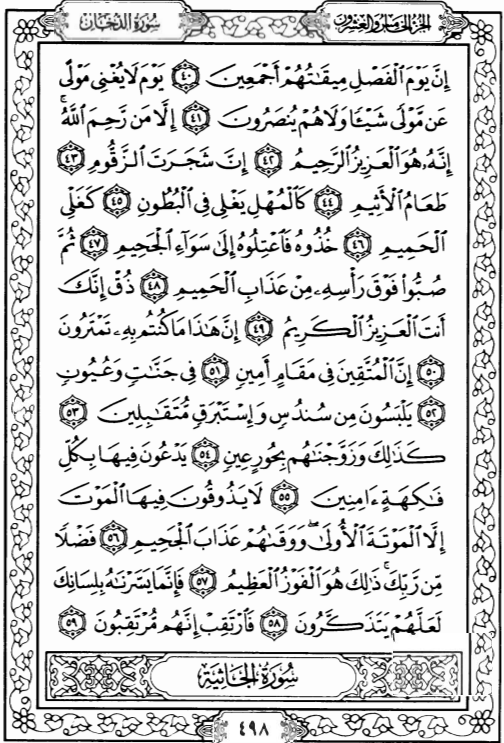 الجزء الخامس والعشرون سُورَةُ الدُّخَانِ
إِنَّ يَوْمَ ٱلْفَصْلِ مِيقَٰتُهُمْ أَجْمَعِينَ ٤٠ يَوْمَ لَا يُغْنِى مَوْلًى
عَن مَّوْلًى شَيْـًٔا وَلَا هُمْ يُنصَرُونَ ٤١ إِلَّا مَن رَّحِمَ ٱللَّهُ ۚ
إِنَّهُۥ هُوَ ٱلْعَزِيزُ ٱلرَّحِيمُ ٤٢ إِنَّ شَجَرَتَ ٱلزَّقُّومِ ٤٣
طَعَامُ ٱلْأَثِيمِ ٤٤ كَٱلْمُهْلِ يَغْلِى فِى ٱلْبُطُونِ ٤٥ كَغَلْىِ
ٱلْحَمِيمِ ٤٦ خُذُوهُ فَٱعْتِلُوهُ إِلَىٰ سَوَآءِ ٱلْجَحِيمِ ٤٧ ثُمَّ
صُبُّوا۟ فَوْقَ رَأْسِهِۦ مِنْ عَذَابِ ٱلْحَمِيمِ ٤٨ ذُقْ إِنَّكَ
أَنتَ ٱلْعَزِيزُ ٱلْكَرِيمُ ٤٩ إِنَّ هَٰذَا مَا كُنتُم بِهِۦ تَمْتَرُونَ
٥٠ إِنَّ ٱلْمُتَّقِينَ فِى مَقَامٍ أَمِينٍ ٥١ فِى جَنَّٰتٍ وَعُيُونٍ
٥٢ يَلْبَسُونَ مِن سُندُسٍ وَإِسْتَبْرَقٍ مُّتَقَٰبِلِينَ ٥٣
كَذَٰلِكَ وَزَوَّجْنَٰهُم بِحُورٍ عِينٍ ٥٤ يَدْعُونَ فِيهَا بِكُلِّ
فَٰكِهَةٍ ءَامِنِينَ ٥٥ لَا يَذُوقُونَ فِيهَا ٱلْمَوْتَ
إِلَّا ٱلْمَوْتَةَ ٱلْأُولَىٰ ۖ وَوَقَىٰهُمْ عَذَابَ ٱلْجَحِيمِ ٥٦ فَضْلًا
مِّن رَّبِّكَ ۚ ذَٰلِكَ هُوَ ٱلْفَوْزُ ٱلْعَظِيمُ ٥٧ فَإِنَّمَا يَسَّرْنَٰهُ بِلِسَانِكَ
لَعَلَّهُمْ يَتَذَكَّرُونَ ٥٨ فَٱرْتَقِبْ إِنَّهُم مُّرْتَقِبُونَ ٥٩
سُورَةُ الجَاثِيَةِ
٤٩٨